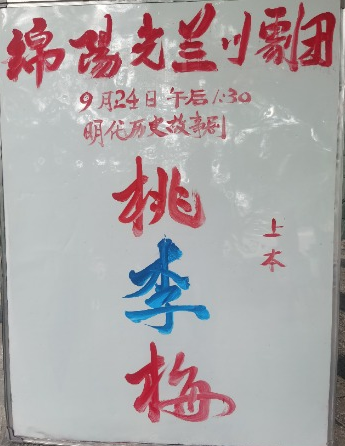 綿陽光兰川劇团
9月24日午后1:30
明代历史故事剧
桃
李
梅
上本